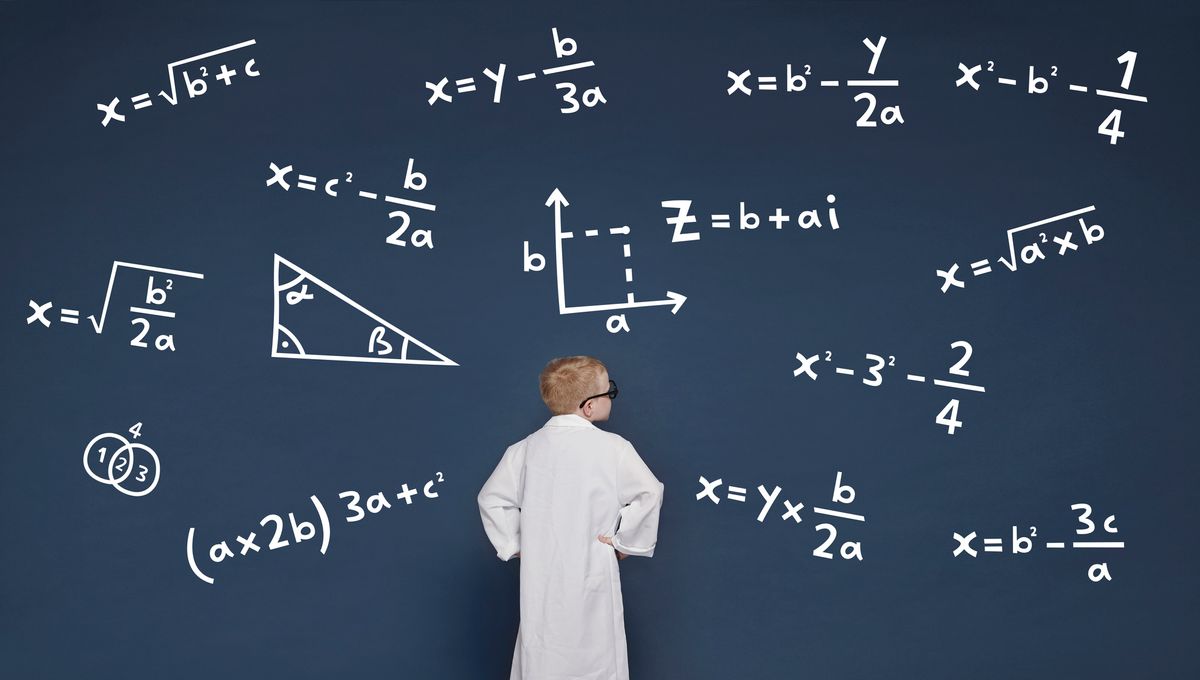 x = √(b² + c)
x = y - b/3a
x = b² - y/2a
x² - b² - 1/4
x = c² - b/2a
b
a
Z = b + ai
x = √(a² x b)
x = √(b²/2a)
α
β
x² - 3² - 2/4
4
1 2 3
(a x 2b) 3a + c²
x = y x b/2a
x = b² - 3c/a